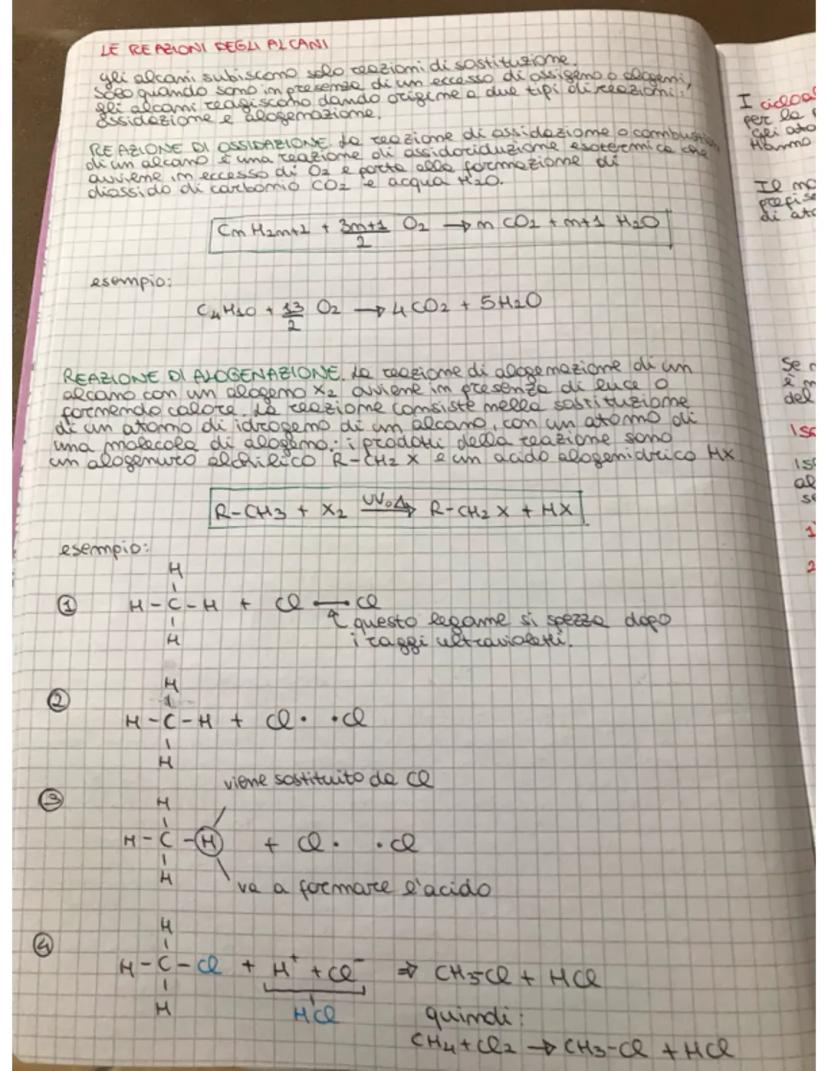 LE REAZIONI DEGLI ALCANI
gli alcani subiscono solo reazioni di sostituzione.
Solo quando sono in presenza di un eccesso di ossigeno o alogeni,
gli alcani reagiscono dando origine a due tipi di reazioni:
ossidazione e alogenazione.
REAZIONE DI OSSIDAZIONE. La reazione di ossidazione o combustione
di un alcano è una reazione di ossidoriduzione esotermica che
avviene in eccesso di O2 e porta alla formazione di
diossido di carbonio CO2 e acqua H2O.
CnH2n+2 + 3n+1/2 O2 → n CO2 + n+1 H2O
esempio:
C4H10 + 13/2 O2 → 4CO2 + 5H2O
REAZIONE DI ALOGENAZIONE. La reazione di alogenazione di un
alcano con un alogeno X2 avviene in presenza di luce o
fornendo calore. La reazione consiste nella sostituzione
di un atomo di idrogeno di un alcano, con un atomo di
una molecola di alogeno: i prodotti della reazione sono
un alogenuro alchilico R-CH2X e un acido alogenidrico HX
R-CH3 + X2 UV o Δ → R-CH2X + HX
esempio:
H
① H-C-H + Cl — Cl
H
↑ questo legame si spezza dopo
i raggi ultravioletti.
H
② H-C-H + Cl· ·Cl
H
viene sostituito da Cl
③ H
H-C-H + Cl· ·Cl
H
va a formare l'acido
④ H
H-C-Cl + H⁺ + Cl⁻ ⇒ CH3Cl + HCl
H
HCl
quindi:
CH4 + Cl2 → CH3-Cl + HCl
I
per la
gli
Hanno
Il
di
Se
è
del
1
2